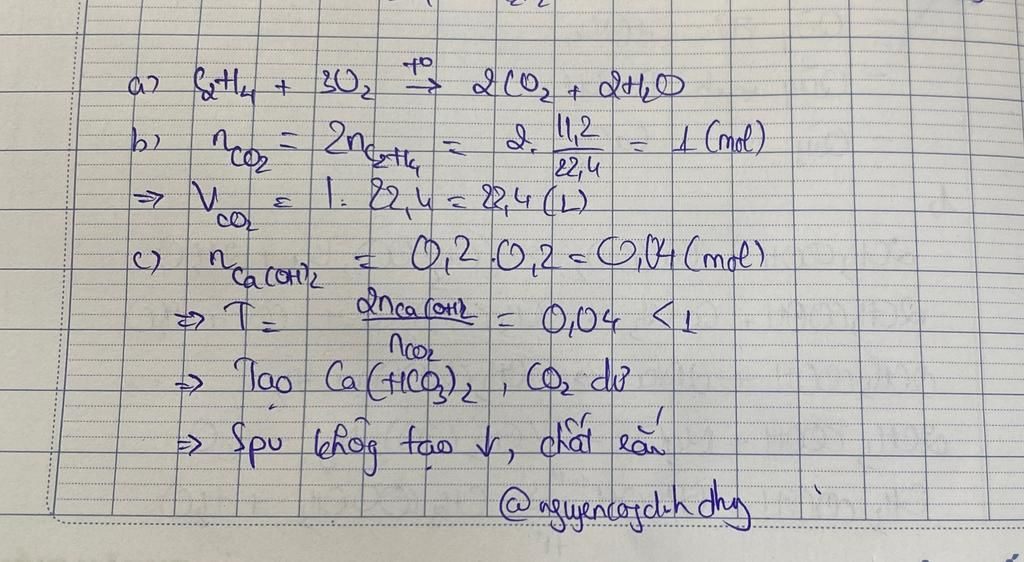 a) C₂H₄ + 3O₂ →(t°) 2CO₂ + 2H₂O
b) n_CO₂ = 2n_C₂H₄ = 2. 11,2/22,4 = 1 (mol)
⇒ V_CO₂ = 1. 22,4 = 22,4 (L)
c) n_Ca(OH)₂ = 0,2 . 0,2 = 0,04 (mol)
⇒ T = 2n_Ca(OH)₂/n_CO₂ = 0,04 < 1
⇒ Tạo Ca(HCO₃)₂, CO₂ dư
⇒ Spư không tạo ↓, chất rắn